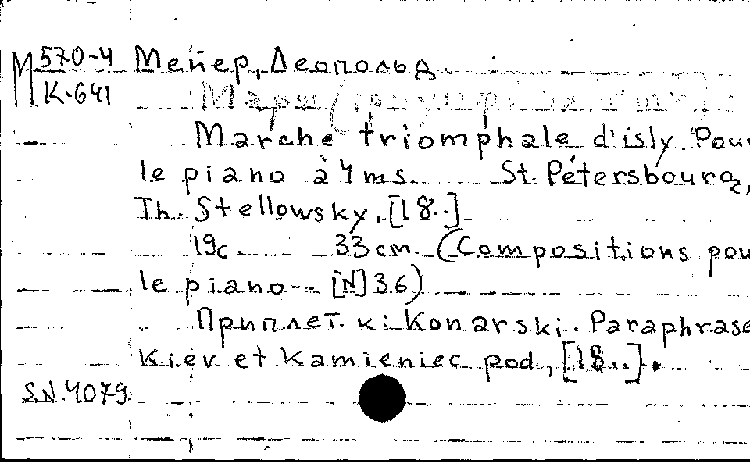 М 570-4 Мейер, Леопольд
К-641
Marche triomphale d'isly. Pour
le piano à 4 ms. St. Pétersbourg,
Th. Stellowsky, [18..]
19с. 33 cm. (Compositions pou
le piano-- [N] 36)
Приплет. к: Konarski. Paraphrase
Kiev et Kamieniec pod, [18..].
S.N. 4079